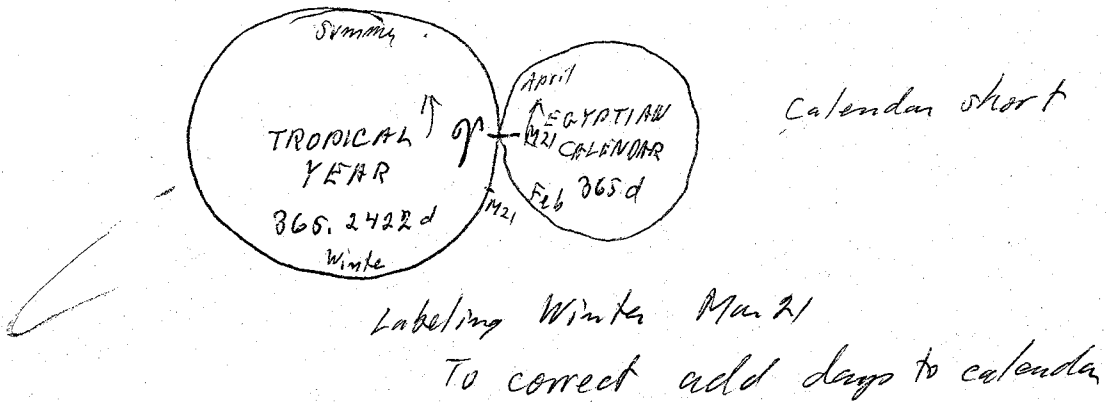 Summer
TROPICAL
YEAR
365.2422 d
Winte
♈
M21
April
M21 EGYPTIAN
CALENDAR
Feb 365 d
Calendar short
Labeling Winter Mar 21
To correct add days to calendar